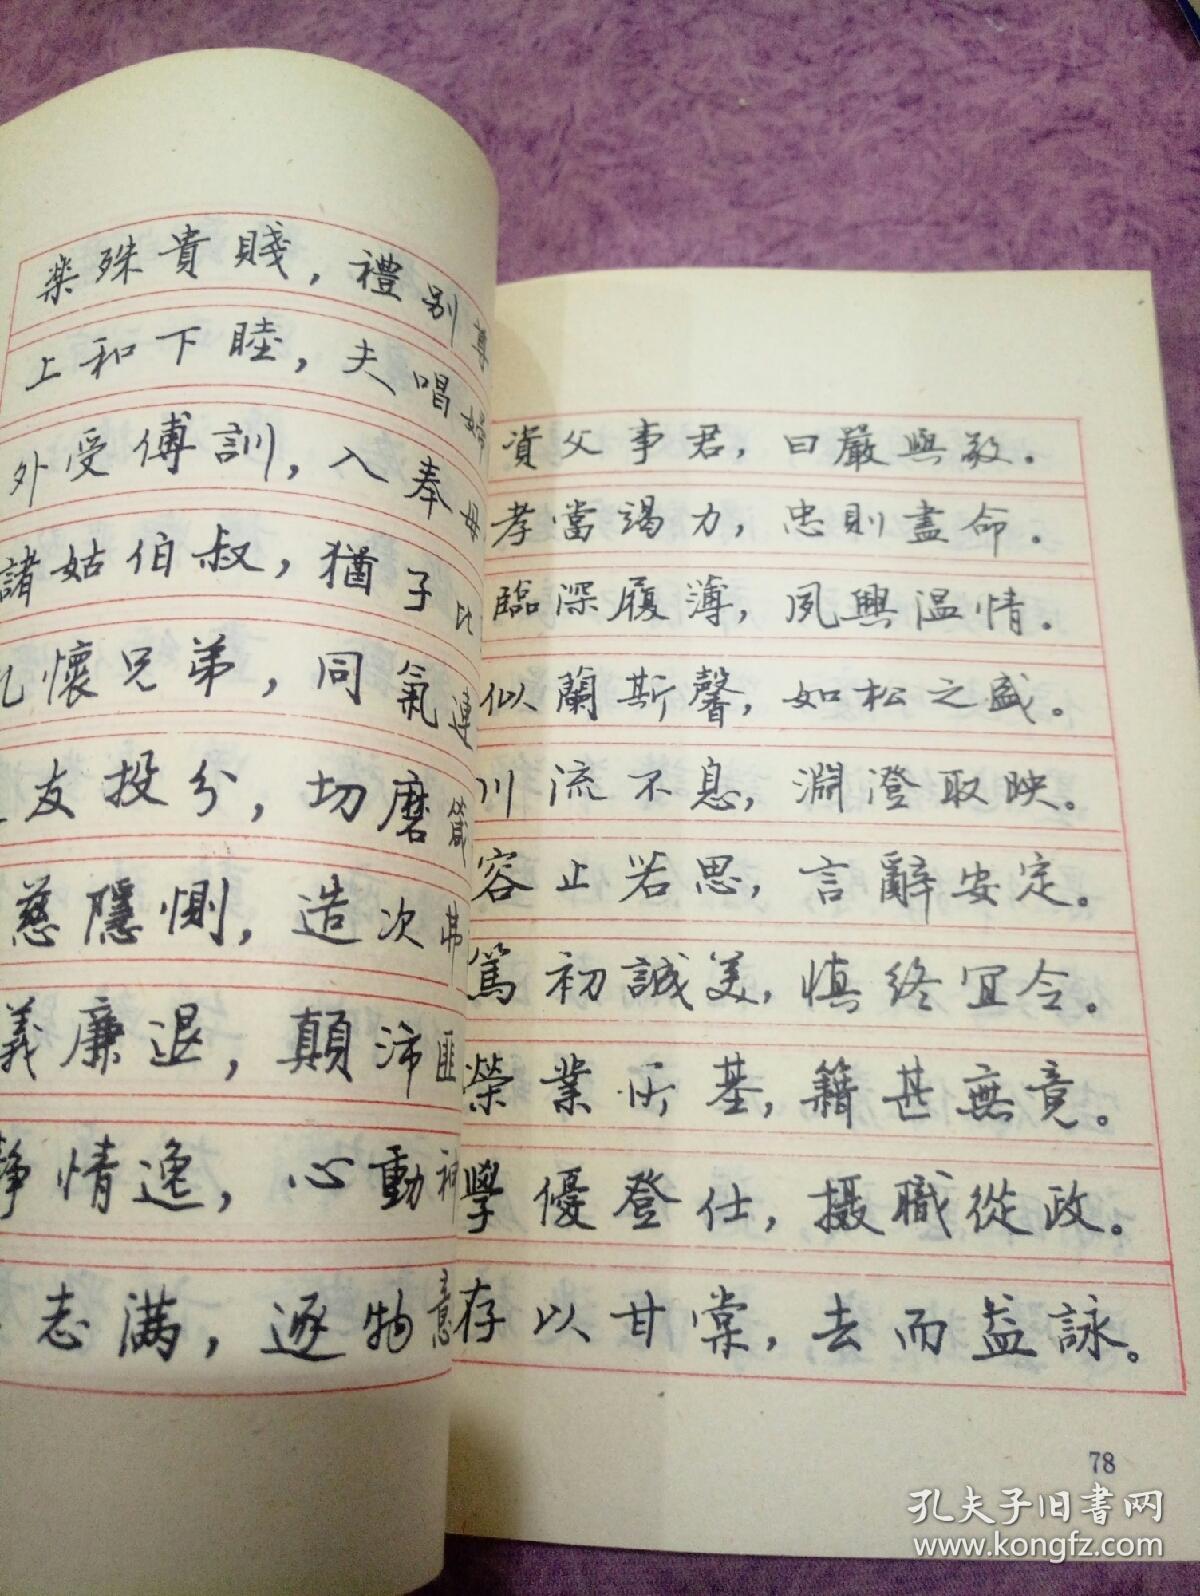 楽殊貴賤，禮别尊
上和下睦，夫唱婦
外受傅訓，入奉母
諸姑伯叔，猶子比
孔懷兄弟，同氣連
友投分，切磨箴
慈隱惻，造次弗
義廉退，顛沛匪
靜情逸，心動神
志满，逐物意
資父事君，曰嚴與敬。
孝當竭力，忠則盡命。
臨深履薄，夙興温情。
似蘭斯馨，如松之盛。
川流不息，淵澄取映。
容止若思，言辭安定。
篤初誠美，慎終宜令。
榮業所基，籍甚無竟。
學優登仕，摄職從政。
存以甘棠，去而益詠。
78
孔夫子旧书网
www.kongfz.com